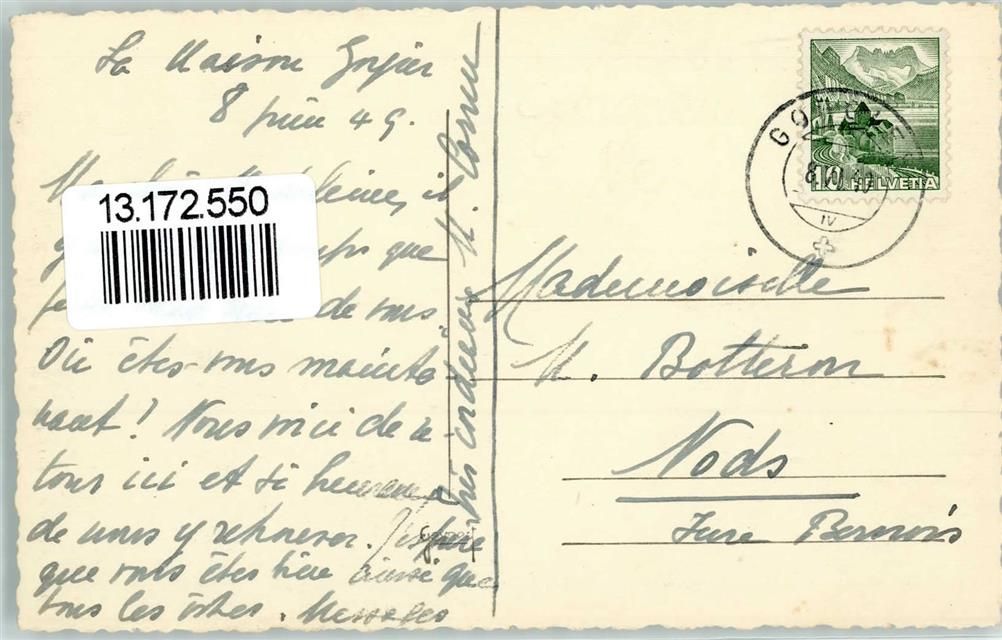 La Maison
8 juin 49.
que
de vous
Où êtes-vous mainte
nant? Nous voici de re
tour ici et si heureux
de nous y retrouver. J'espère
que vous êtes bien ainsi que
tous les vôtres. Messages
très cordiaux M. Cornu
13.172.550
HELVETIA
IV
Mademoiselle
M. Botteron
Nods
Jura Bernois